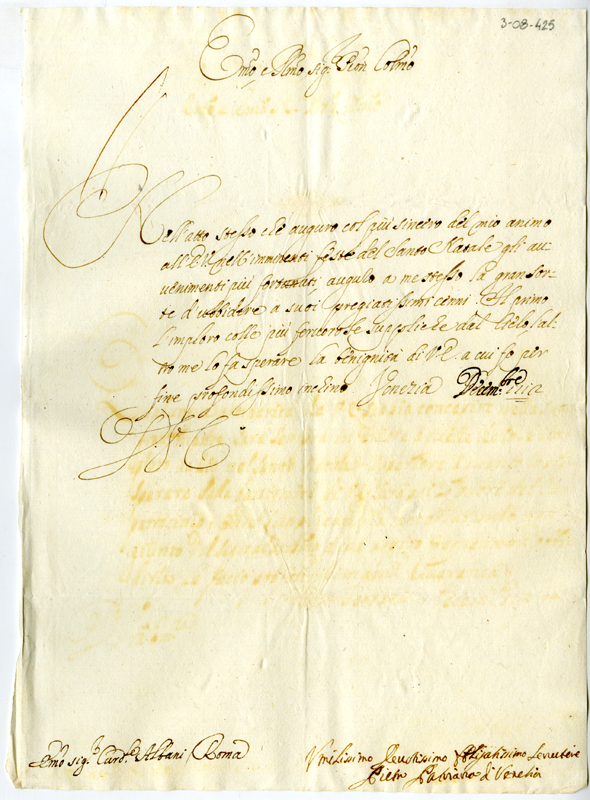 3-08-425
Emo e Rmo Sigr Pron Colmo
Nell'atto stesso che auguro col più sincero del mio animo
all'E.V. nell'imminenti feste del Santo Natale gli au-
venimenti più fortunati, augulo a me stesso la gran sor-
te d'ubbidire a suoi pregiatissimi cenni. Il primo
l'imploro colle più fervorose suppliche dal Cielo, l'al-
tro me lo fa sperare la benignità di V.E. a cui fo per
fine profondissimo inchino Venezia Decembre
Di V. E.
Emo sigr Carde Albani Roma
Vmilissimo Deuotissimo Obligatissimo Seruitore
Pietro Patriarca di Venezia